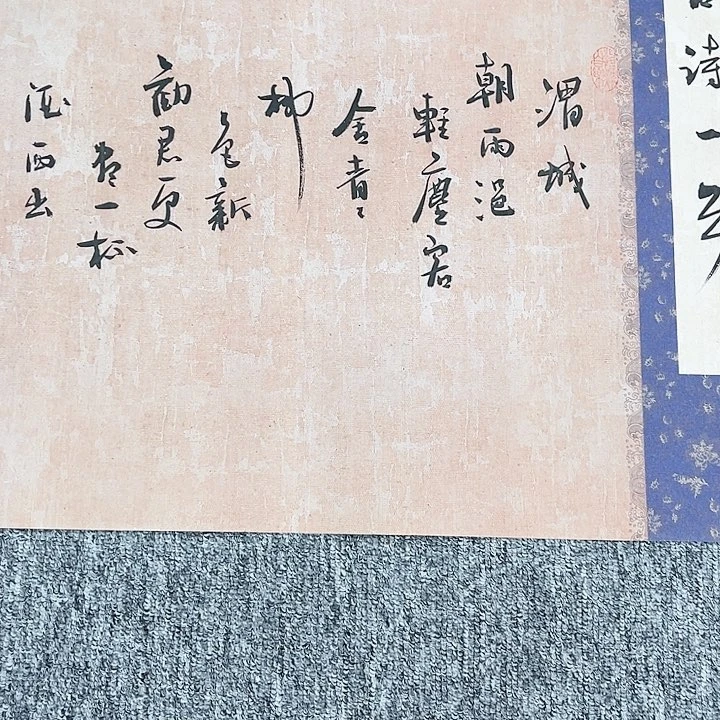 詩一
渭城
朝雨浥
輕塵客
舍青々
柳
色新
勸君更
盡一杯
酒西出